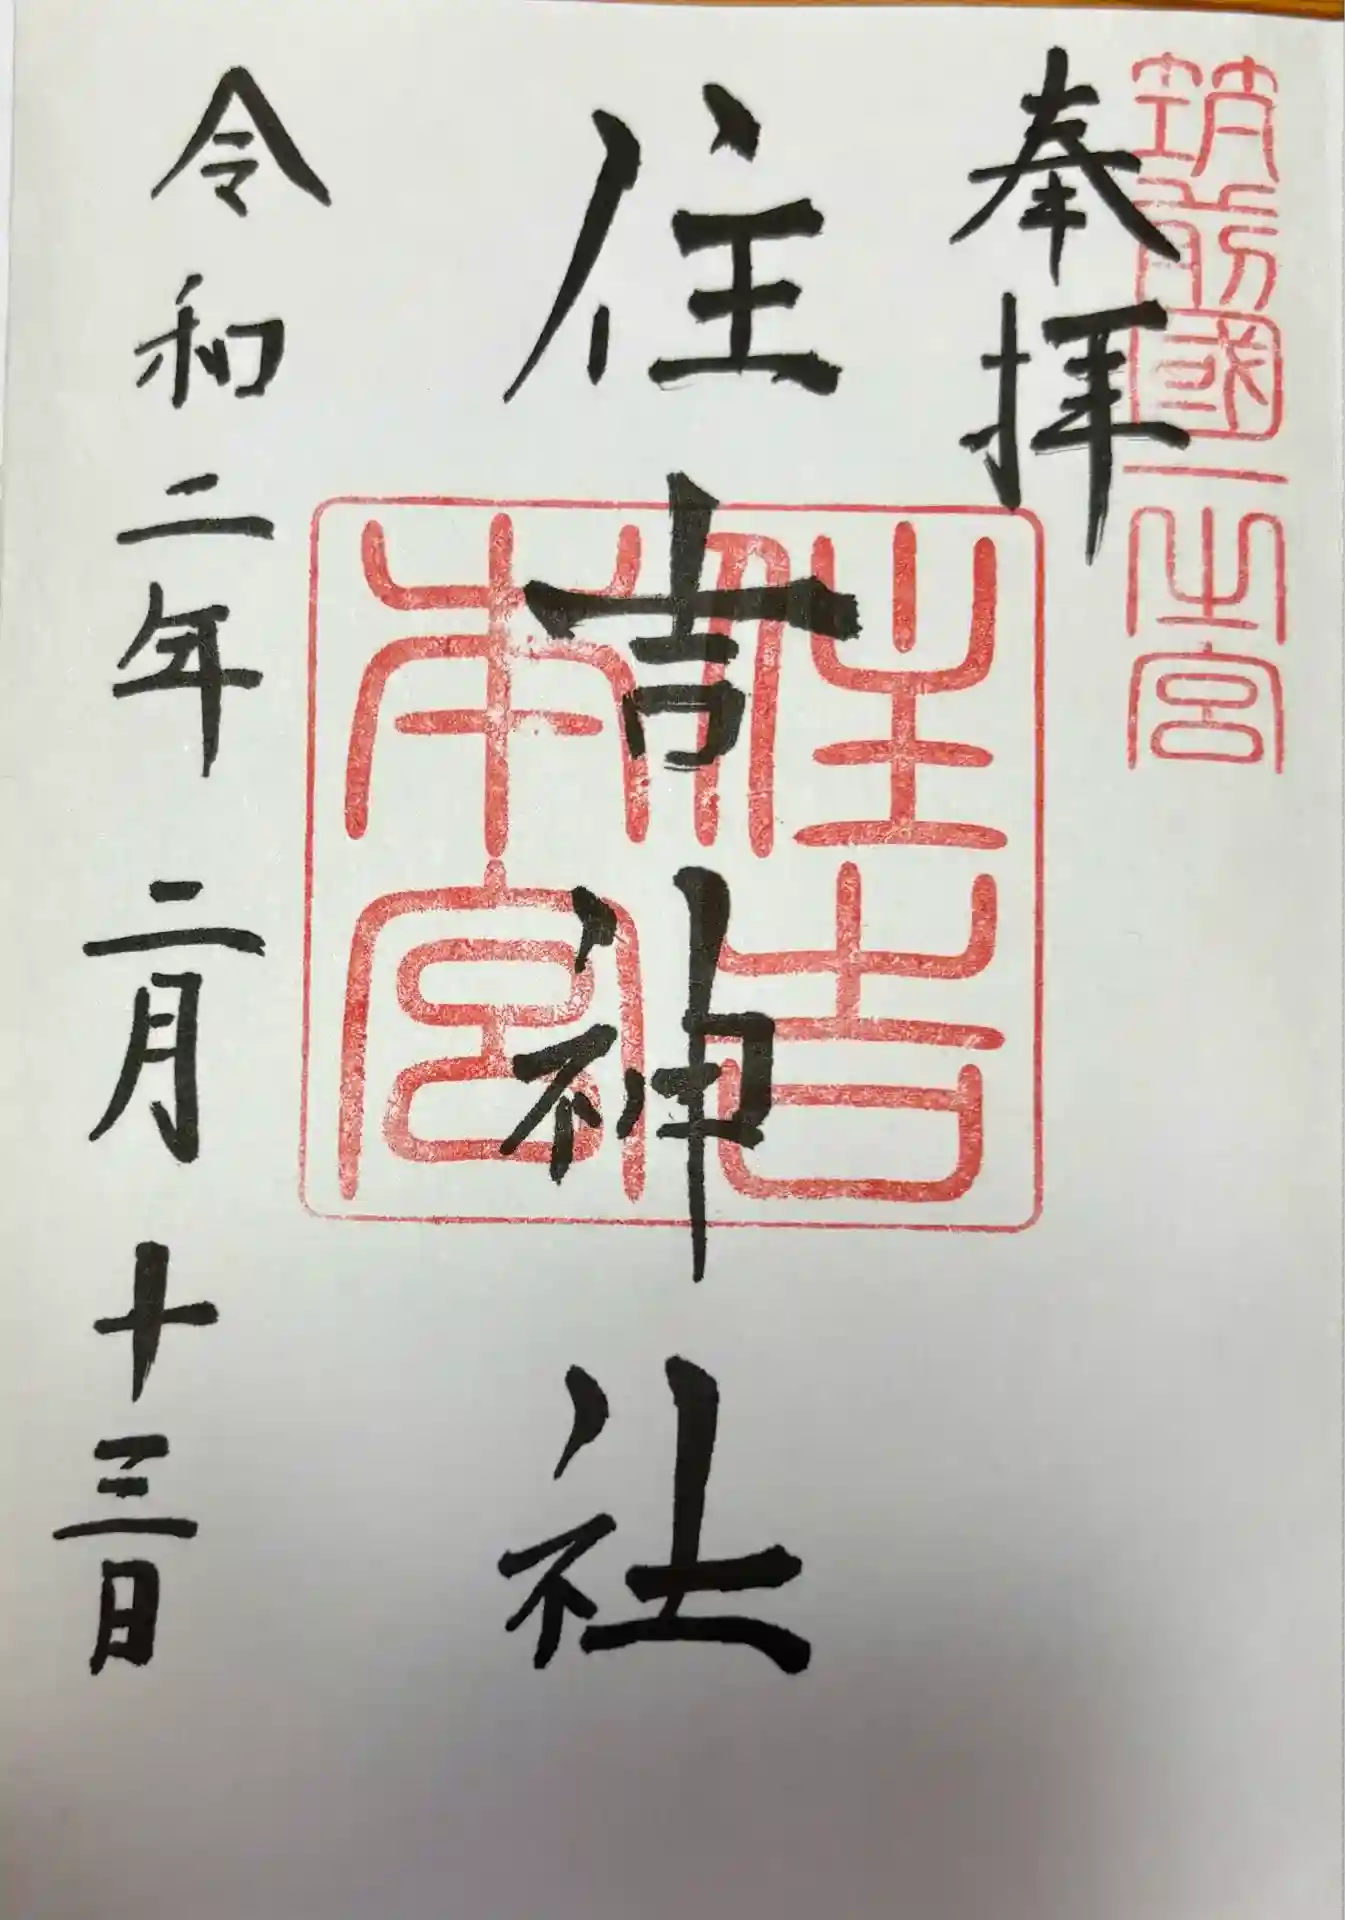 筑前國一之宮
奉拝
住吉神社
住吉
本宮
令和二年二月十三日